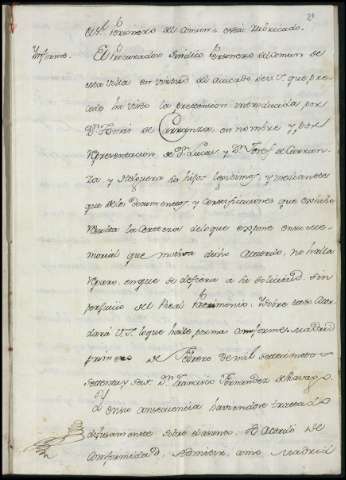 el Sr. Personero del comun: esta rubricado.
Informe. El Procurador Sindico Personero del comun de
esta villa en virtud del acuerdo de V.S. que pre-
cede ha visto la pretension introducida por
Dn. Tomas de Carranza en nombre y por
representacion de Dn. Lucas y Dn. Josef de Carran-
za y su hijos lexitimos, y mediante
que de los documentos y certificaciones que
resulta la certeza de lo que expone en su me-
morial que motiva dicho Acuerdo, no halla
reparo en que se defiera a la solicitud sin
perjuicio del Real Patrimonio. Sobre todo Acor-
dara V.S. lo que halle por mas conforme. Madrid
primero de Febrero de mil setecientos
setenta y seis. Dn. Francisco Fernandez de
Y en su consecuencia haviendose tratado
difusamente sobre el asunto. Se Acordó de
conformidad admitir, como Madrid